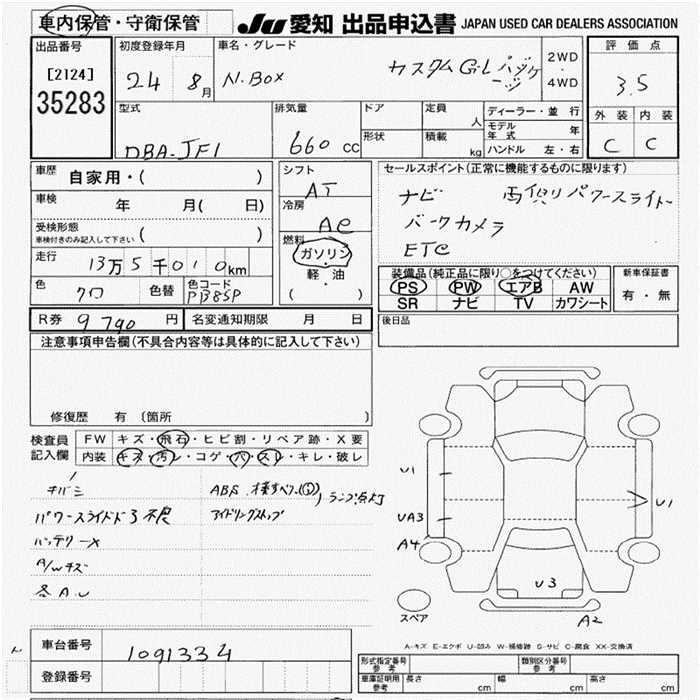 車内保管・守衛保管
JU 愛知 出品申込書 JAPAN USED CAR DEALERS ASSOCIATION
出品番号
[2124]
35283
初度登録年月
24 8月
車名・グレード
N.Box カスタムG・Lパッケージ
2WD
4WD
評価点
3.5
外装 内装
C C
型式
DBA-JF1
排気量
660 CC
ドア
形状
定員 人
積載 kg
ディーラー・並行
モデル年式 年
ハンドル 左・右
車歴
自家用・( )
車検 年 月( 日)
受検形態
車検付きのみ記入して下さい ( )
走行
13万5千010km
色
クロ
色替
色コード
シフト
AT
冷房
AC
燃料
ガソリン
・
軽油
( )
セールスポイント(正常に機能するものに限ります)
ナビ 両側パワースライドー
バックカメラ
ETC
装備品(純正品に限り○をつけてください)
PS PW エアB AW
SR ナビ TV カワシート
新車保証書
有・無
R券 9790 円
名変通知期限 月 日
後日品
注意事項申告欄(不具合内容等は具体的に記入して下さい)
修復歴 有 〔箇所 〕
検査員
記入欄
FW キズ・飛石・ヒビ割・リペア跡・X要
内装 キズ・汚レ・コゲ・穴・スレ・キレ・破レ
ABS
ランプ点灯
アイドリングストップ
バッテリーX
A/Wキズ
各A.U
U1
UA3
A4
U1
U3
A2
スペア
A-キズ E-エクボ U-凹み W-補修跡 S-サビ C-腐食 XX-交換済
車台番号
1091334
登録番号
型式指定番号
参考
類別区分番号
参考
車庫証明用
参考
長さ cm
幅 cm
高さ cm